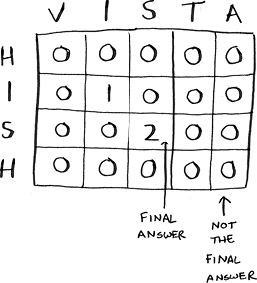 V I S T A
H 0 0 0 0 0
I 0 1 0 0 0
S 0 0 2 0 0
H 0 0 0 0 0
FINAL
ANSWER
NOT
THE
FINAL
ANSWER